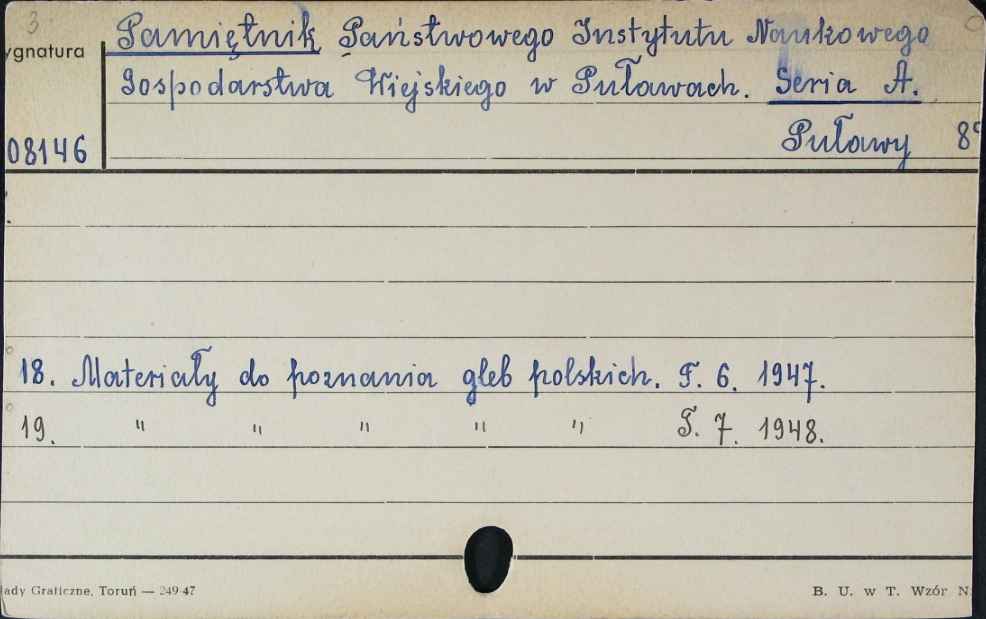 3
ygnatura
Pamiętnik Państwowego Instytutu Naukowego
Gospodarstwa Wiejskiego w Puławach. Seria A.
08146
Puławy 8°
18. Materiały do poznania gleb polskich. T. 6. 1947.
19. " " " " " T. 7. 1948.
łady Graficzne, Toruń — 249-47
B. U. w T. Wzór N